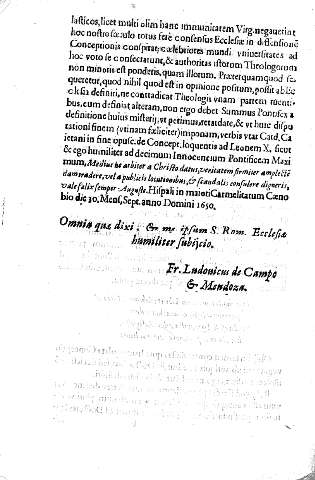 lasticos, licet multi olim hanc immunitatem Virg. negauerint
hoc nostro sæculo totus ferè consensus Ecclesiæ in defensione
Conceptionis conspirat, & celebriores mundi vniuersitates ad
hoc voto se consecrant, & authoritas istorum Theologorum
non minoris est ponderis, quam illorum. Præterquamquod se-
queretur, quod nihil quod est in opinione positum, possit ab Ec
clesia definiri, ne contradicat Theologis vnam partem tuenti-
bus, cum definit alteram, non ergo debet Summus Pontifex a
definitione huius misterij, vt petimus, retardare, & vt huic dispu
tationi finem (vtinam fæliciter) imponam, verbis vtar Card. Ca
ietani in fine opusc. de Concept. loquentis ad Leonem X. sicut
& ego humiliter ad decimum Innocentium Pontificem Maxi
mum, Medius ut arbiter a Christo datus, veritatem firmiter amplecti
dam tradere, vel a publicis locutionibus, & scandalis consulere digneris,
vale fælix semper Auguste. Hispali in maiori Carmelitarum Cœno
bio die 30. Mens. Sept. anno Domini 1650.
Omnia quæ dixi, & me ipsum S. Rom. Ecclesiæ
humiliter subijcio.
Fr. Ludouicus de Campo
& Mendoza.